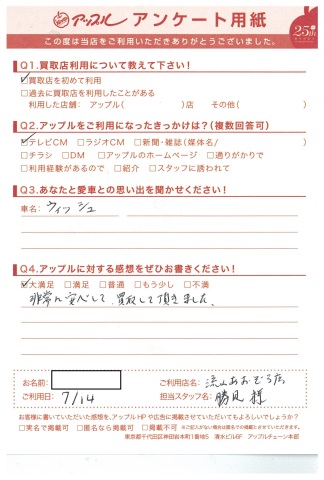 アップル アンケート用紙
25th
この度は当店をご利用いただきありがとうございました。
Q1.買取店利用について教えて下さい!
☑買取店を初めて利用
□過去に買取店を利用したことがある
利用した店舗: アップル( )店 その他( )
Q2.アップルをご利用になったきっかけは?(複数回答可)
☑テレビCM □ラジオCM □新聞・雑誌(媒体名/ )
□チラシ □DM □アップルのホームページ □通りがかりで
□利用経験があるので □紹介 □スタッフに誘われて
Q3.あなたと愛車との思い出を聞かせください!
車名: ウィッシュ
Q4.アップルに対する感想をぜひお書きください!
☑大満足 □満足 □普通 □もう少し □不満
非常に安心して、買取して頂きました。
お名前:
ご利用店名: 流山おおたかの森店
ご利用日: 7/14
担当スタッフ名: 勝見 様
お客様に書いていただいた感想を、アップルHPや広告に掲載させていただいてもよろしいでしょうか?
□実名で掲載可 □匿名なら掲載可 □掲載不可 ※ご記入がない場合は匿名での掲載とさせていただきます。
東京都千代田区神田谷本町1番地5 清水ビル6F アップルチェーン本部